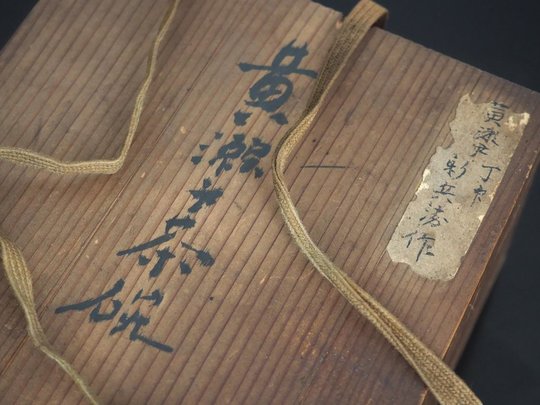 黄瀬戸茶碗
黄瀬戸 丁
新兵衛作